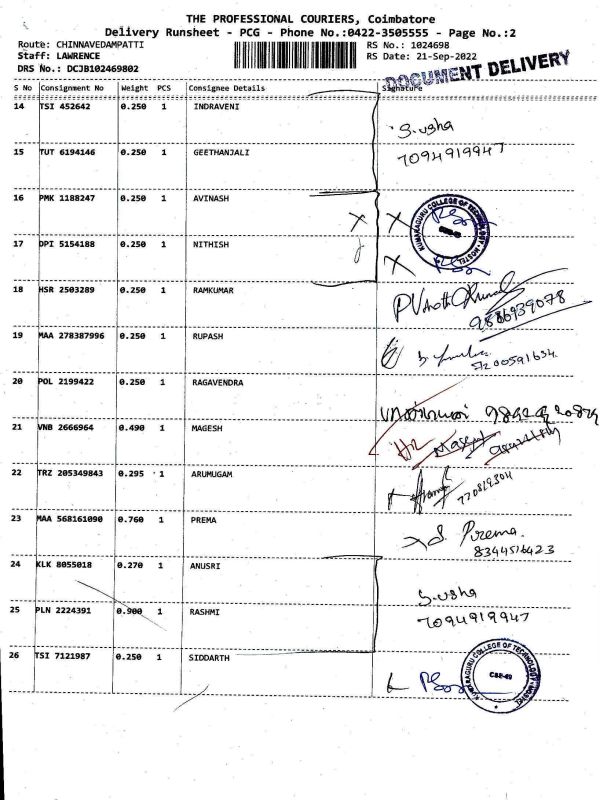 THE PROFESSIONAL COURIERS, Coimbatore
Delivery Runsheet - PCG - Phone No.:0422-3505555 - Page No.:2
Route: CHINNAVEDAMPATTI
Staff: LAWRENCE
DRS No.: DCJB102469802
RS No.: 1024698
RS Date: 21-Sep-2022
DOCUMENT DELIVERY
S No Consignment No Weight PCS Consignee Details Signature
14 TSI 452642 0.250 1 INDRAVENI
S.usha
7094919947
15 TUT 6194146 0.250 1 GEETHANJALI
16 PMK 1188247 0.250 1 AVINASH
KUMARAGURU COLLEGE OF TECHNOLOGY HOSTEL
17 DPI 5154188 0.250 1 NITHISH
18 HSR 2503289 0.250 1 RAMKUMAR
9886939078
19 MAA 278387996 0.250 1 RUPASH
20 POL 2199422 0.250 1 RAGAVENDRA
21 VNB 2666964 0.490 1 MAGESH
22 TRZ 205349843 0.295 1 ARUMUGAM
23 MAA 568161090 0.760 1 PREMA
S. Prema
8344516423
24 KLK 8055018 0.270 1 ANUSRI
S.usha
7094919947
25 PLN 2224391 0.900 1 RASHMI
26 TSI 7121987 0.250 1 SIDDARTH
KUMARAGURU COLLEGE OF TECHNOLOGY HOSTEL
CBE-49